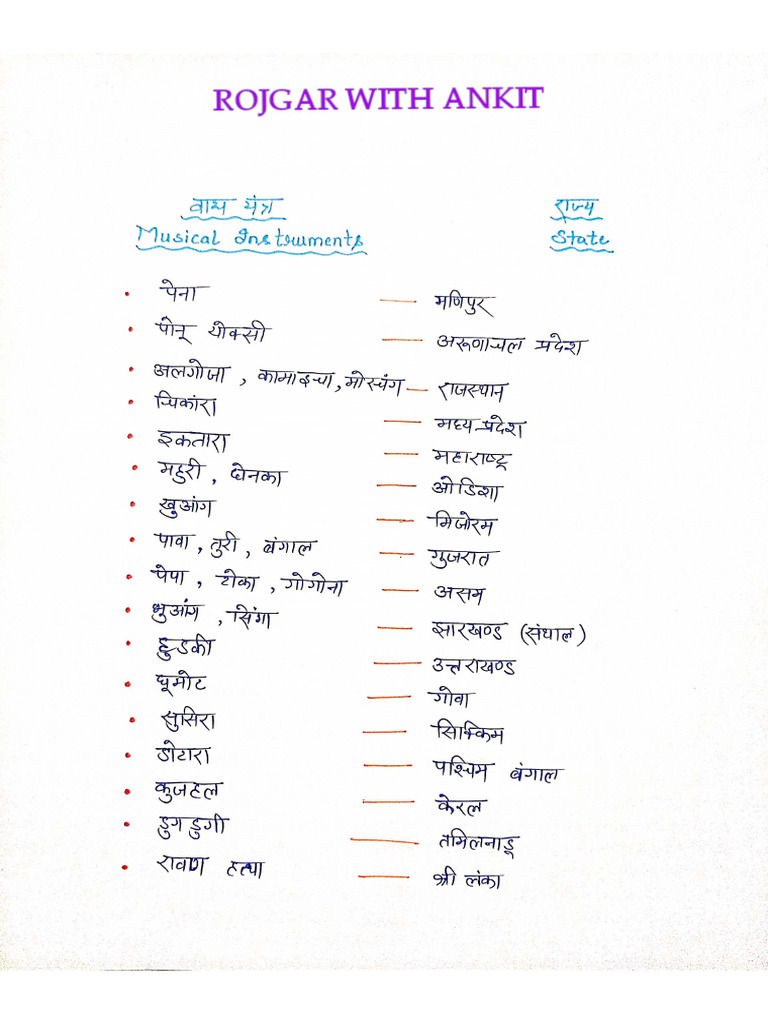 ROJGAR WITH ANKIT
वाद्य यंत्र राज्य
Musical Instruments State
• पेना — मणिपुर
• पोनू योक्सी — अरूणाचल प्रदेश
• अलगोजा , कामाइचा, मोरचंग — राजस्थान
• चिकारा — मध्य प्रदेश
• इकतारा — महाराष्ट्र
• महुरी , ढोनका — ओडिशा
• खुआंग — मिजोरम
• पावा , तुरी , बंगाल — गुजरात
• पेपा , टोका , गोगोना — असम
• भुआंग , सिंगा — झारखण्ड (संथाल)
• हुडकी — उत्तराखण्ड
• घूमोट — गोवा
• सुसिरा — सिक्किम
• डोटारा — पश्चिम बंगाल
• कुजहल — केरल
• डुगडुगी — तमिलनाडू
• रावण हत्था — श्री लंका